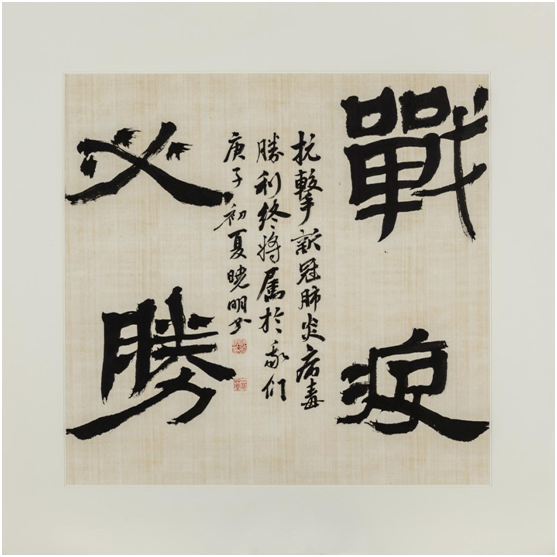 戰疫
抗擊新冠肺炎病毒
勝利終將属於我们
庚子初夏曉明书
必勝